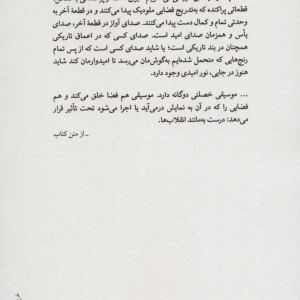 قطعاتی پراکنده که به‌تدریج فضایی ملودیک پیدا می‌کنند و
وحدتی تمام و کمال دست پیدا می‌کنند. صدای آواز در قطعهٔ آخر، صدای
یأس و همزمان صدای امید است. صدای کسی که در اعماق تاریکی
همچنان در بند تاریکی است؛ یا شاید صدای کسی است که از پس تمام
رنج‌هایی که متحمل شده‌ایم به‌گوش‌مان می‌رسد تا امیدوارمان کند شاید
هنوز در جایی، نور امیدی وجود دارد.
... موسیقی خصلتی دوگانه دارد. موسیقی هم فضا خلق می‌کند و هم
فضایی را که در آن به نمایش درمی‌آید یا اجرا می‌شود تحت تأثیر قرار
می‌دهد؛ درست به‌مانند انقلاب‌ها.
ـ از متن کتاب